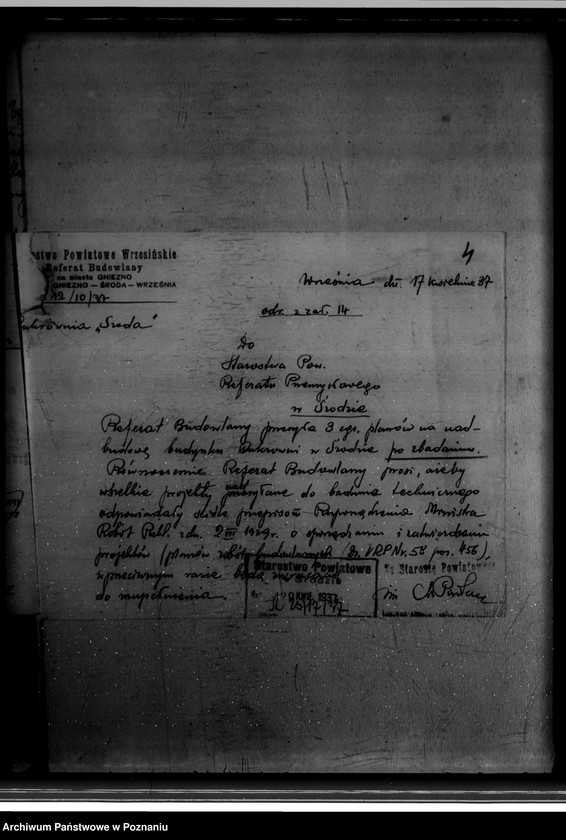 4
stwo Powiatowe Wrzesińskie
Referat Budowlany
na miasto GNIEZNO
GNIEZNO — ŚRODA — WRZEŚNIA
12/10/37
Września dn. 17 kwietnia 37
odr. z zał. 14
Cukrownia „Środa"
Do
Starostwa Pow.
Referatu Przemysłowego
w Środzie
Referat Budowlany przesyła 3 egz. planów na nad-
budowę budynku Cukrowni w Środzie po zbadaniu.
Równocześnie Referat Budowlany prosi, ażeby
wszelkie projekty nadsyłane do badania technicznego
odpowiadały ściśle przepisom Rozporządzenia Ministra
Robót Publ. z dn. 2 III 1929 r. o sporządzaniu i zatwierdzaniu
projektów (planów robót budowlanych (Dz. URP Nr. 58 poz. 456),
w przeciwnym razie będą
do uzupełnienia.
Starostwo Powiatowe
KWI. 1937
Za Starostę Powiatowego